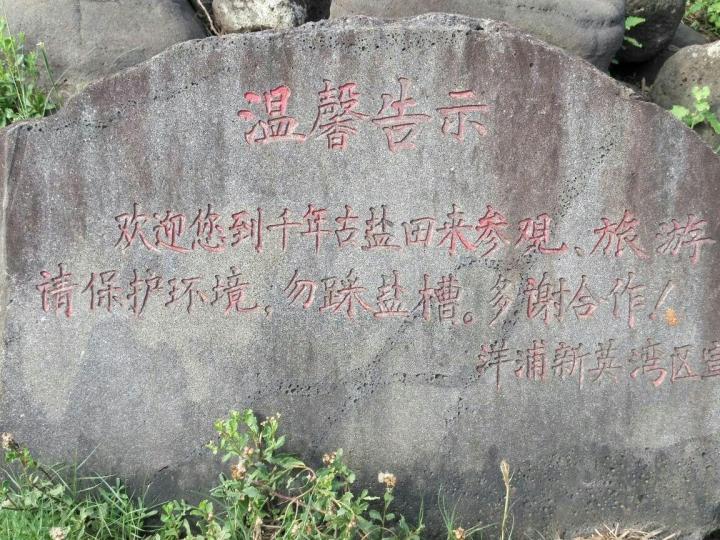 温馨告示
欢迎您到千年古盐田来参观、旅游
请保护环境，勿踩盐槽。多谢合作！
洋浦新英湾区宣